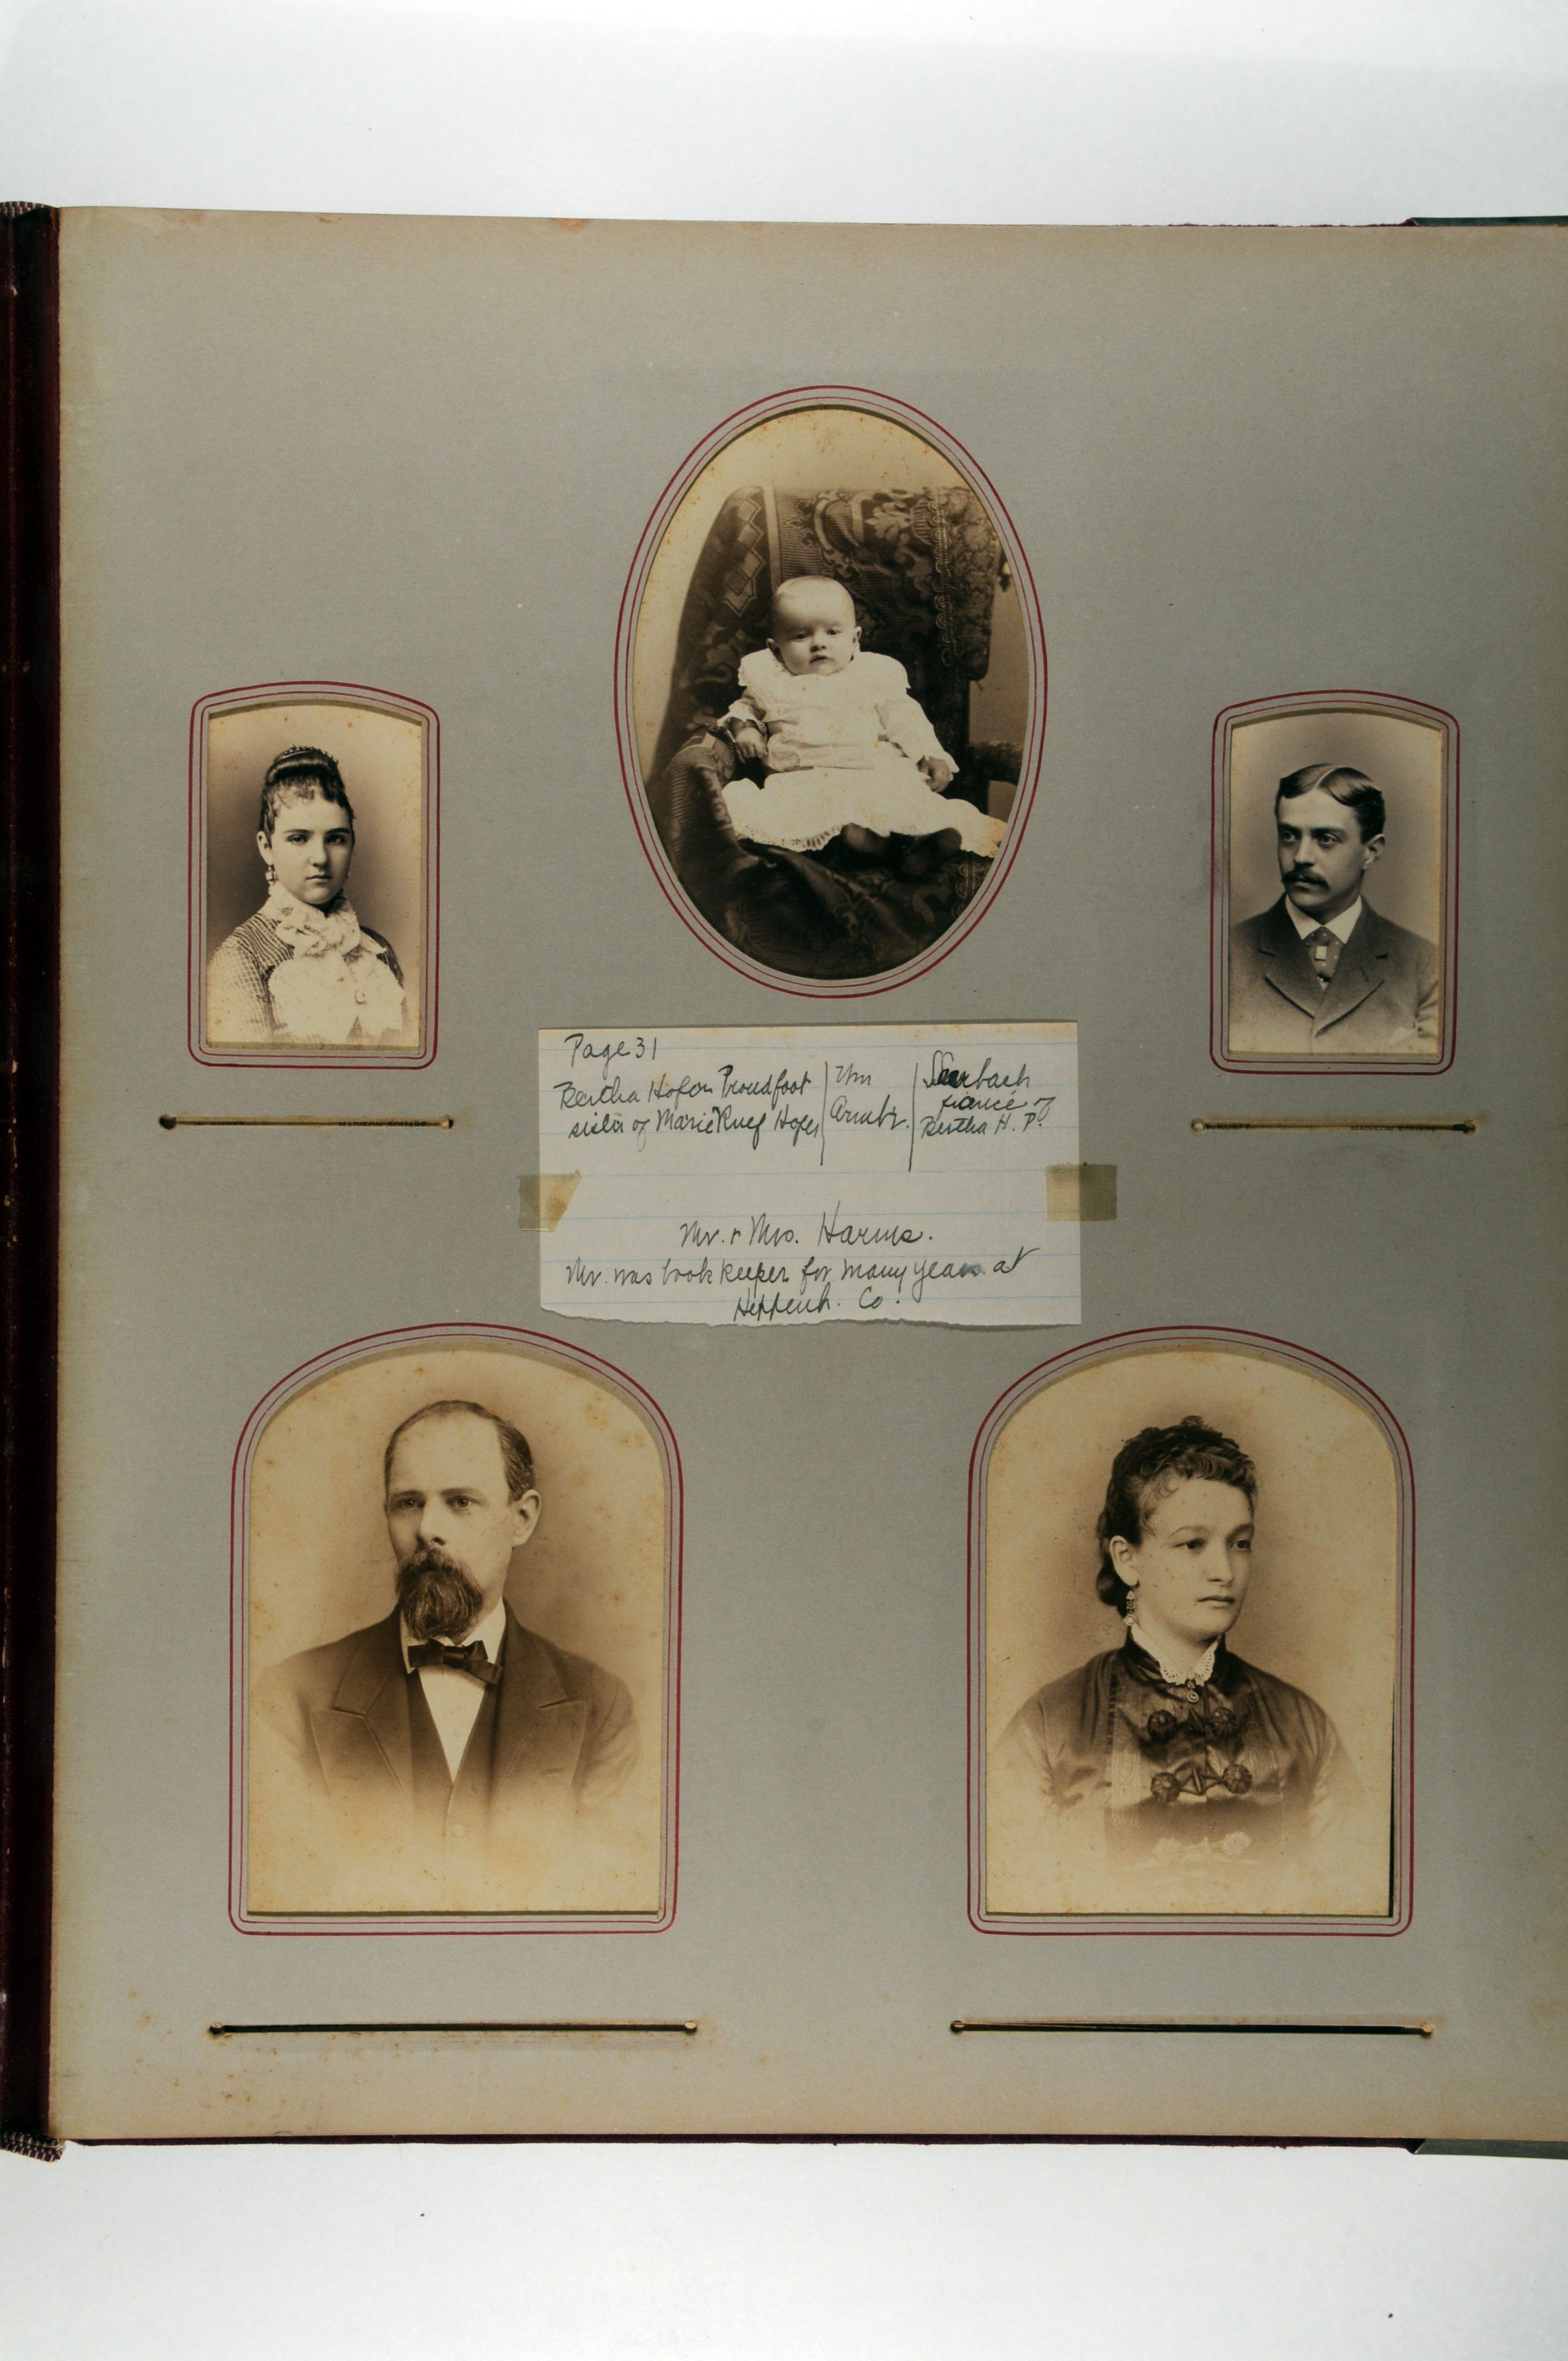 Page 31
Bertha Hofer Proudfoot
sister of Marie Ruef Hofer
Wm
Saurbach
fiancé of
Bertha H. P.
Mr. & Mrs. Harms.
Mr. was bookkeeper for many years at
Co.